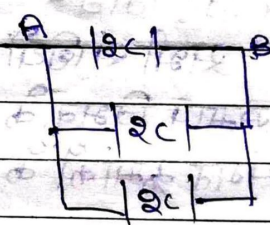 A 2C B
2C
2C